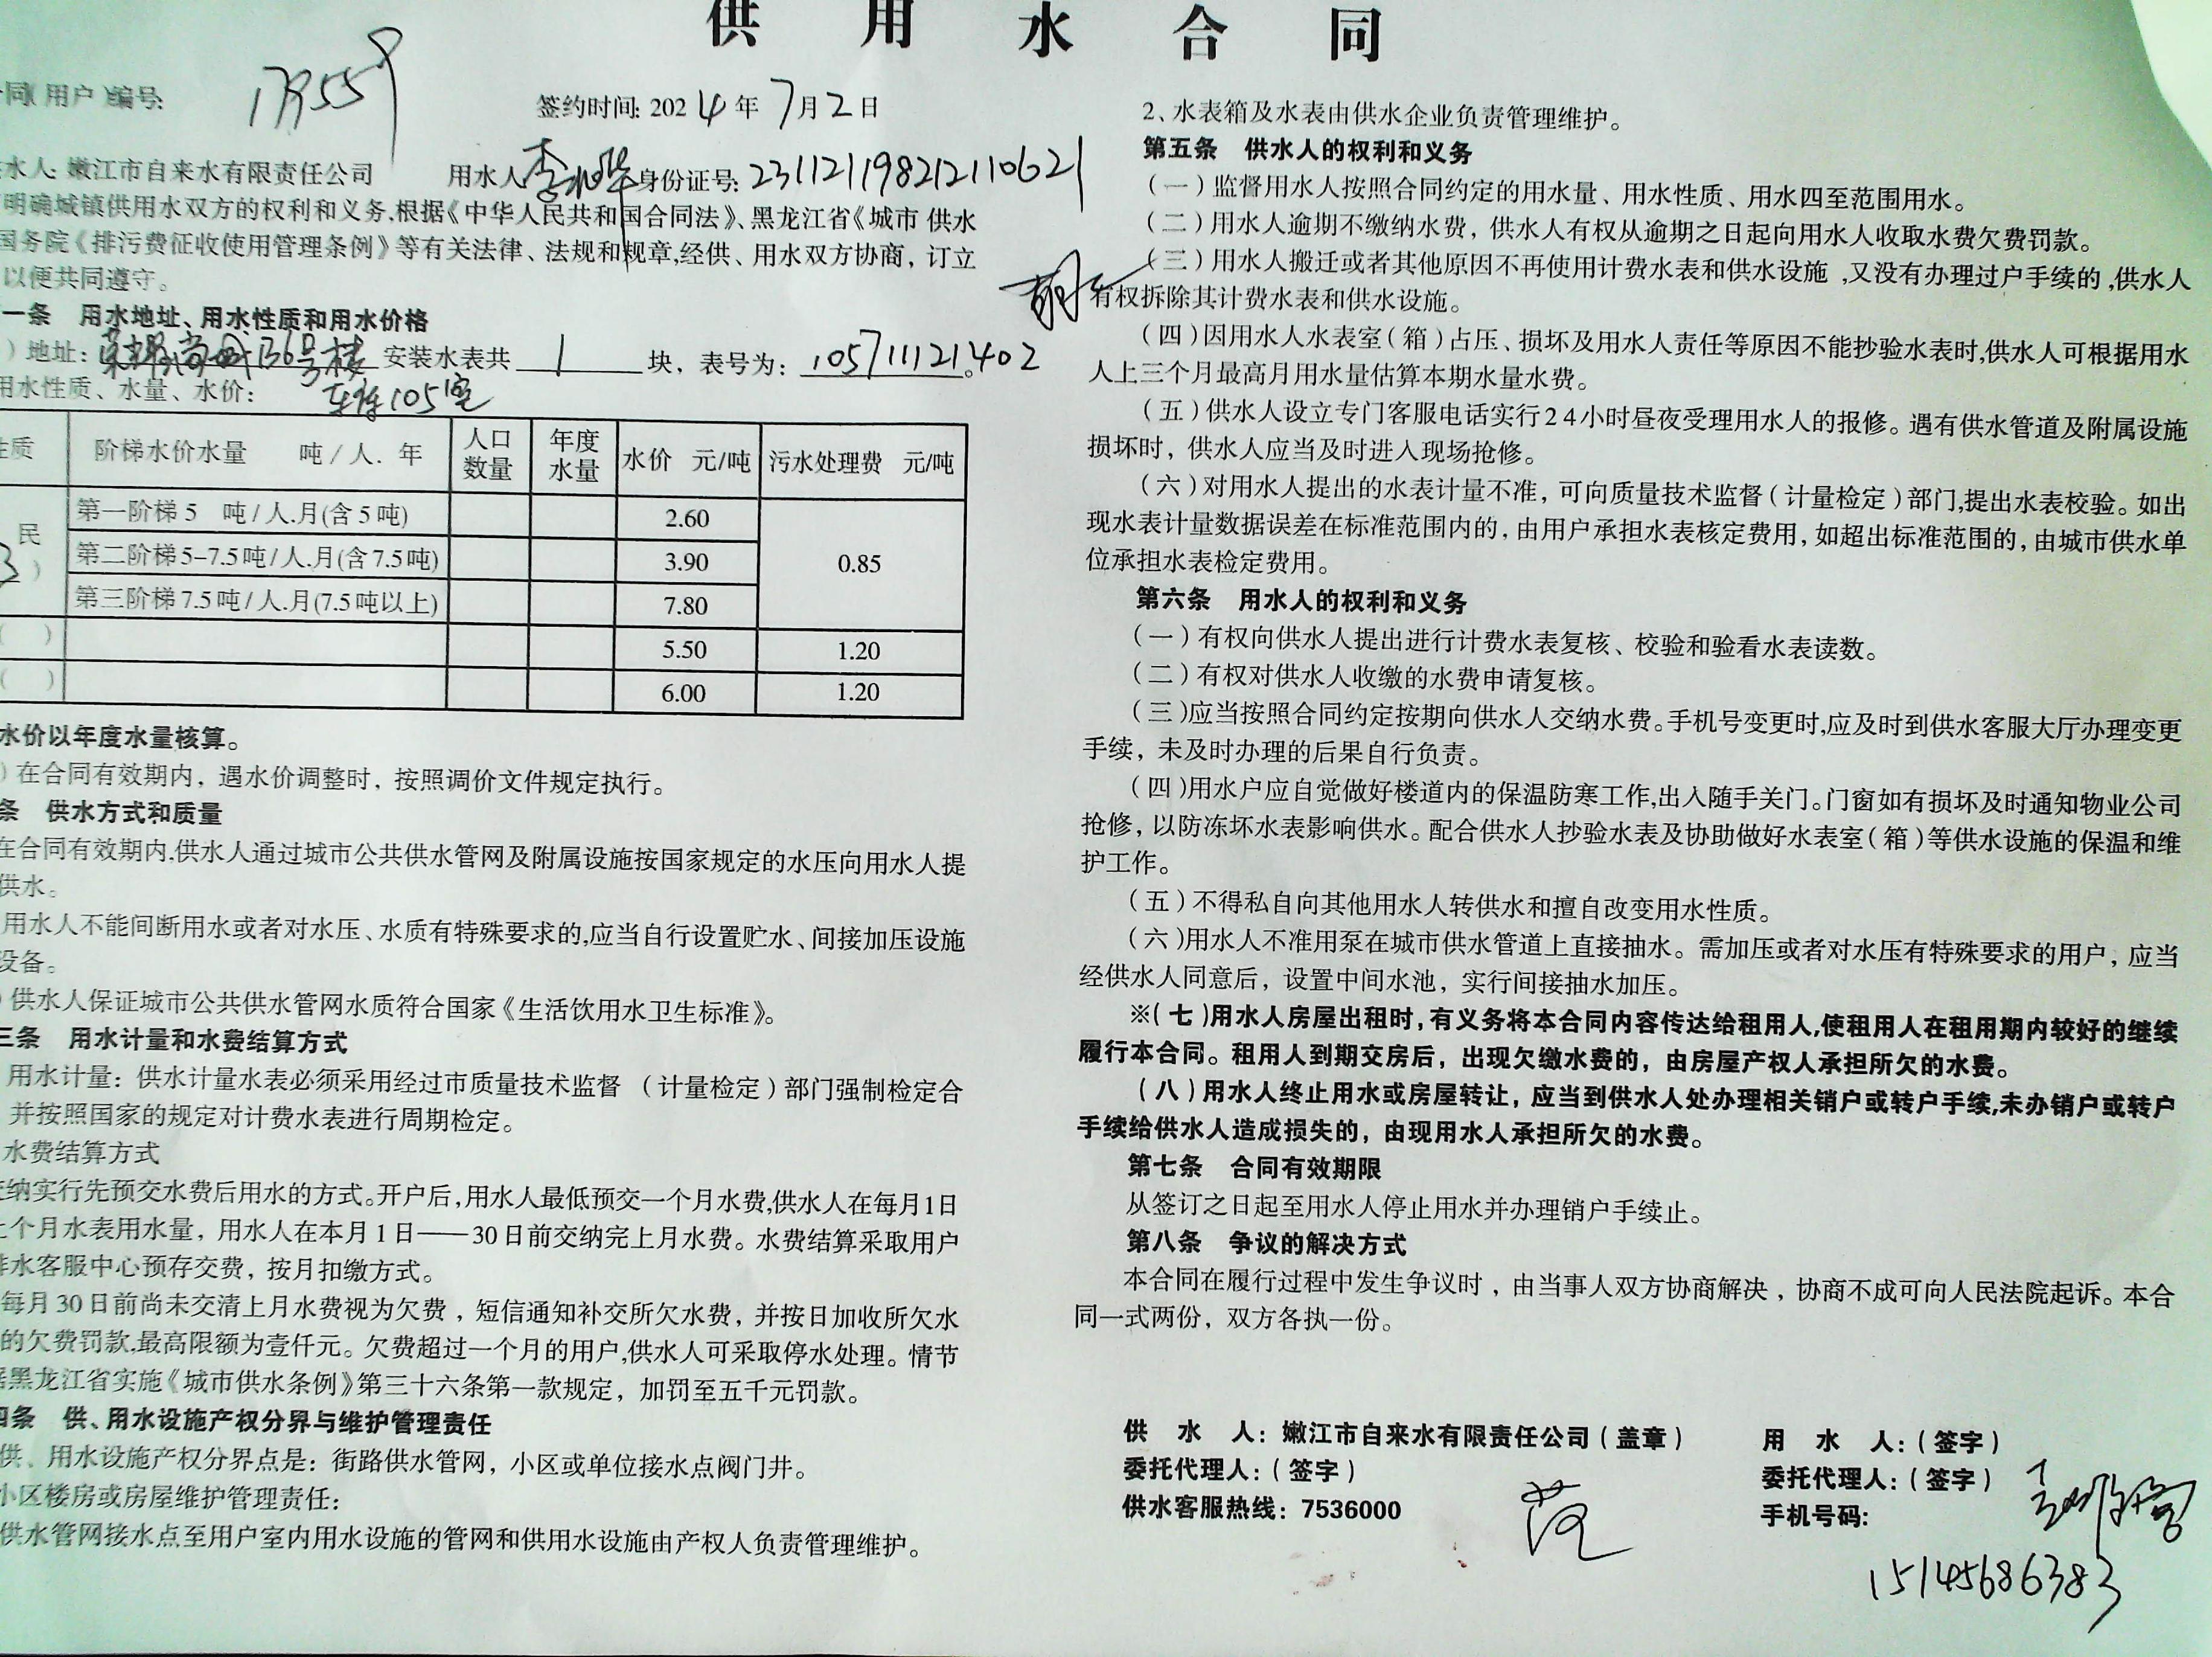 供用水合同
同(用户)编号:
签约时间: 2024年7月2日
水人: 嫩江市自来水有限责任公司 用水人 李 身份证号: 231121198212110621
明确城镇供用水双方的权利和义务,根据《中华人民共和国合同法》、黑龙江省《城市 供水
国务院《排污费征收使用管理条例》等有关法律、法规和规章,经供、用水双方协商,订立
以便共同遵守。
一条 用水地址、用水性质和用水价格
)地址: 136号楼 安装水表共 1 块,表号为: 105711121402。
105室
用水性质、水量、水价:
性质 阶梯水价水量 吨/人. 年 人口数量 年度水量 水价 元/吨 污水处理费 元/吨
民
3 )
第一阶梯 5 吨/人.月(含5吨) 2.60
第二阶梯 5-7.5吨/人.月(含7.5吨) 3.90 0.85
第三阶梯 7.5吨/人.月(7.5吨以上) 7.80
( ) 5.50 1.20
( ) 6.00 1.20
水价以年度水量核算。
)在合同有效期内,遇水价调整时,按照调价文件规定执行。
条 供水方式和质量
在合同有效期内,供水人通过城市公共供水管网及附属设施按国家规定的水压向用水人提
供水。
用水人不能间断用水或者对水压、水质有特殊要求的,应当自行设置贮水、间接加压设施
设备。
)供水人保证城市公共供水管网水质符合国家《生活饮用水卫生标准》。
三条 用水计量和水费结算方式
用水计量:供水计量水表必须采用经过市质量技术监督 (计量检定)部门强制检定合
并按照国家的规定对计费水表进行周期检定。
水费结算方式
纳实行先预交水费后用水的方式。开户后,用水人最低预交一个月水费,供水人在每月1日
个月水表用水量,用水人在本月1日——30日前交纳完上月水费。水费结算采取用户
水客服中心预存交费,按月扣缴方式。
每月30日前尚未交清上月水费视为欠费,短信通知补交所欠水费,并按日加收所欠水
的欠费罚款,最高限额为壹仟元。欠费超过一个月的用户,供水人可采取停水处理。情节
黑龙江省实施《城市供水条例》第三十六条第一款规定,加罚至五千元罚款。
四条 供、用水设施产权分界与维护管理责任
供、用水设施产权分界点是:街路供水管网,小区或单位接水点阀门井。
小区楼房或房屋维护管理责任:
供水管网接水点至用户室内用水设施的管网和供用水设施由产权人负责管理维护。
2、水表箱及水表由供水企业负责管理维护。
第五条 供水人的权利和义务
(一)监督用水人按照合同约定的用水量、用水性质、用水四至范围用水。
(二)用水人逾期不缴纳水费,供水人有权从逾期之日起向用水人收取水费欠费罚款。
(三)用水人搬迁或者其他原因不再使用计费水表和供水设施,又没有办理过户手续的,供水人
有权拆除其计费水表和供水设施。
(四)因用水人水表室(箱)占压、损坏及用水人责任等原因不能抄验水表时,供水人可根据用水
人上三个月最高月用水量估算本期水量水费。
(五)供水人设立专门客服电话实行24小时昼夜受理用水人的报修。遇有供水管道及附属设施
损坏时,供水人应当及时进入现场抢修。
(六)对用水人提出的水表计量不准,可向质量技术监督(计量检定)部门,提出水表校验。如出
现水表计量数据误差在标准范围内的,由用户承担水表核定费用,如超出标准范围的,由城市供水单
位承担水表检定费用。
第六条 用水人的权利和义务
(一)有权向供水人提出进行计费水表复核、校验和验看水表读数。
(二)有权对供水人收缴的水费申请复核。
(三)应当按照合同约定按期向供水人交纳水费。手机号变更时,应及时到供水客服大厅办理变更
手续,未及时办理的后果自行负责。
(四)用水户应自觉做好楼道内的保温防寒工作,出入随手关门。门窗如有损坏及时通知物业公司
抢修,以防冻坏水表影响供水。配合供水人抄验水表及协助做好水表室(箱)等供水设施的保温和维
护工作。
(五)不得私自向其他用水人转供水和擅自改变用水性质。
(六)用水人不准用泵在城市供水管道上直接抽水。需加压或者对水压有特殊要求的用户,应当
经供水人同意后,设置中间水池,实行间接抽水加压。
※(七)用水人房屋出租时,有义务将本合同内容传达给租用人,使租用人在租用期内较好的继续
履行本合同。租用人到期交房后,出现欠缴水费的,由房屋产权人承担所欠的水费。
(八)用水人终止用水或房屋转让,应当到供水人处办理相关销户或转户手续,未办销户或转户
手续给供水人造成损失的,由现用水人承担所欠的水费。
第七条 合同有效期限
从签订之日起至用水人停止用水并办理销户手续止。
第八条 争议的解决方式
本合同在履行过程中发生争议时,由当事人双方协商解决,协商不成可向人民法院起诉。本合
同一式两份,双方各执一份。
供 水 人:嫩江市自来水有限责任公司(盖章)
委托代理人:(签字)
供水客服热线:7536000
范
用 水 人:(签字)
委托代理人:(签字)
手机号码:
15145686383